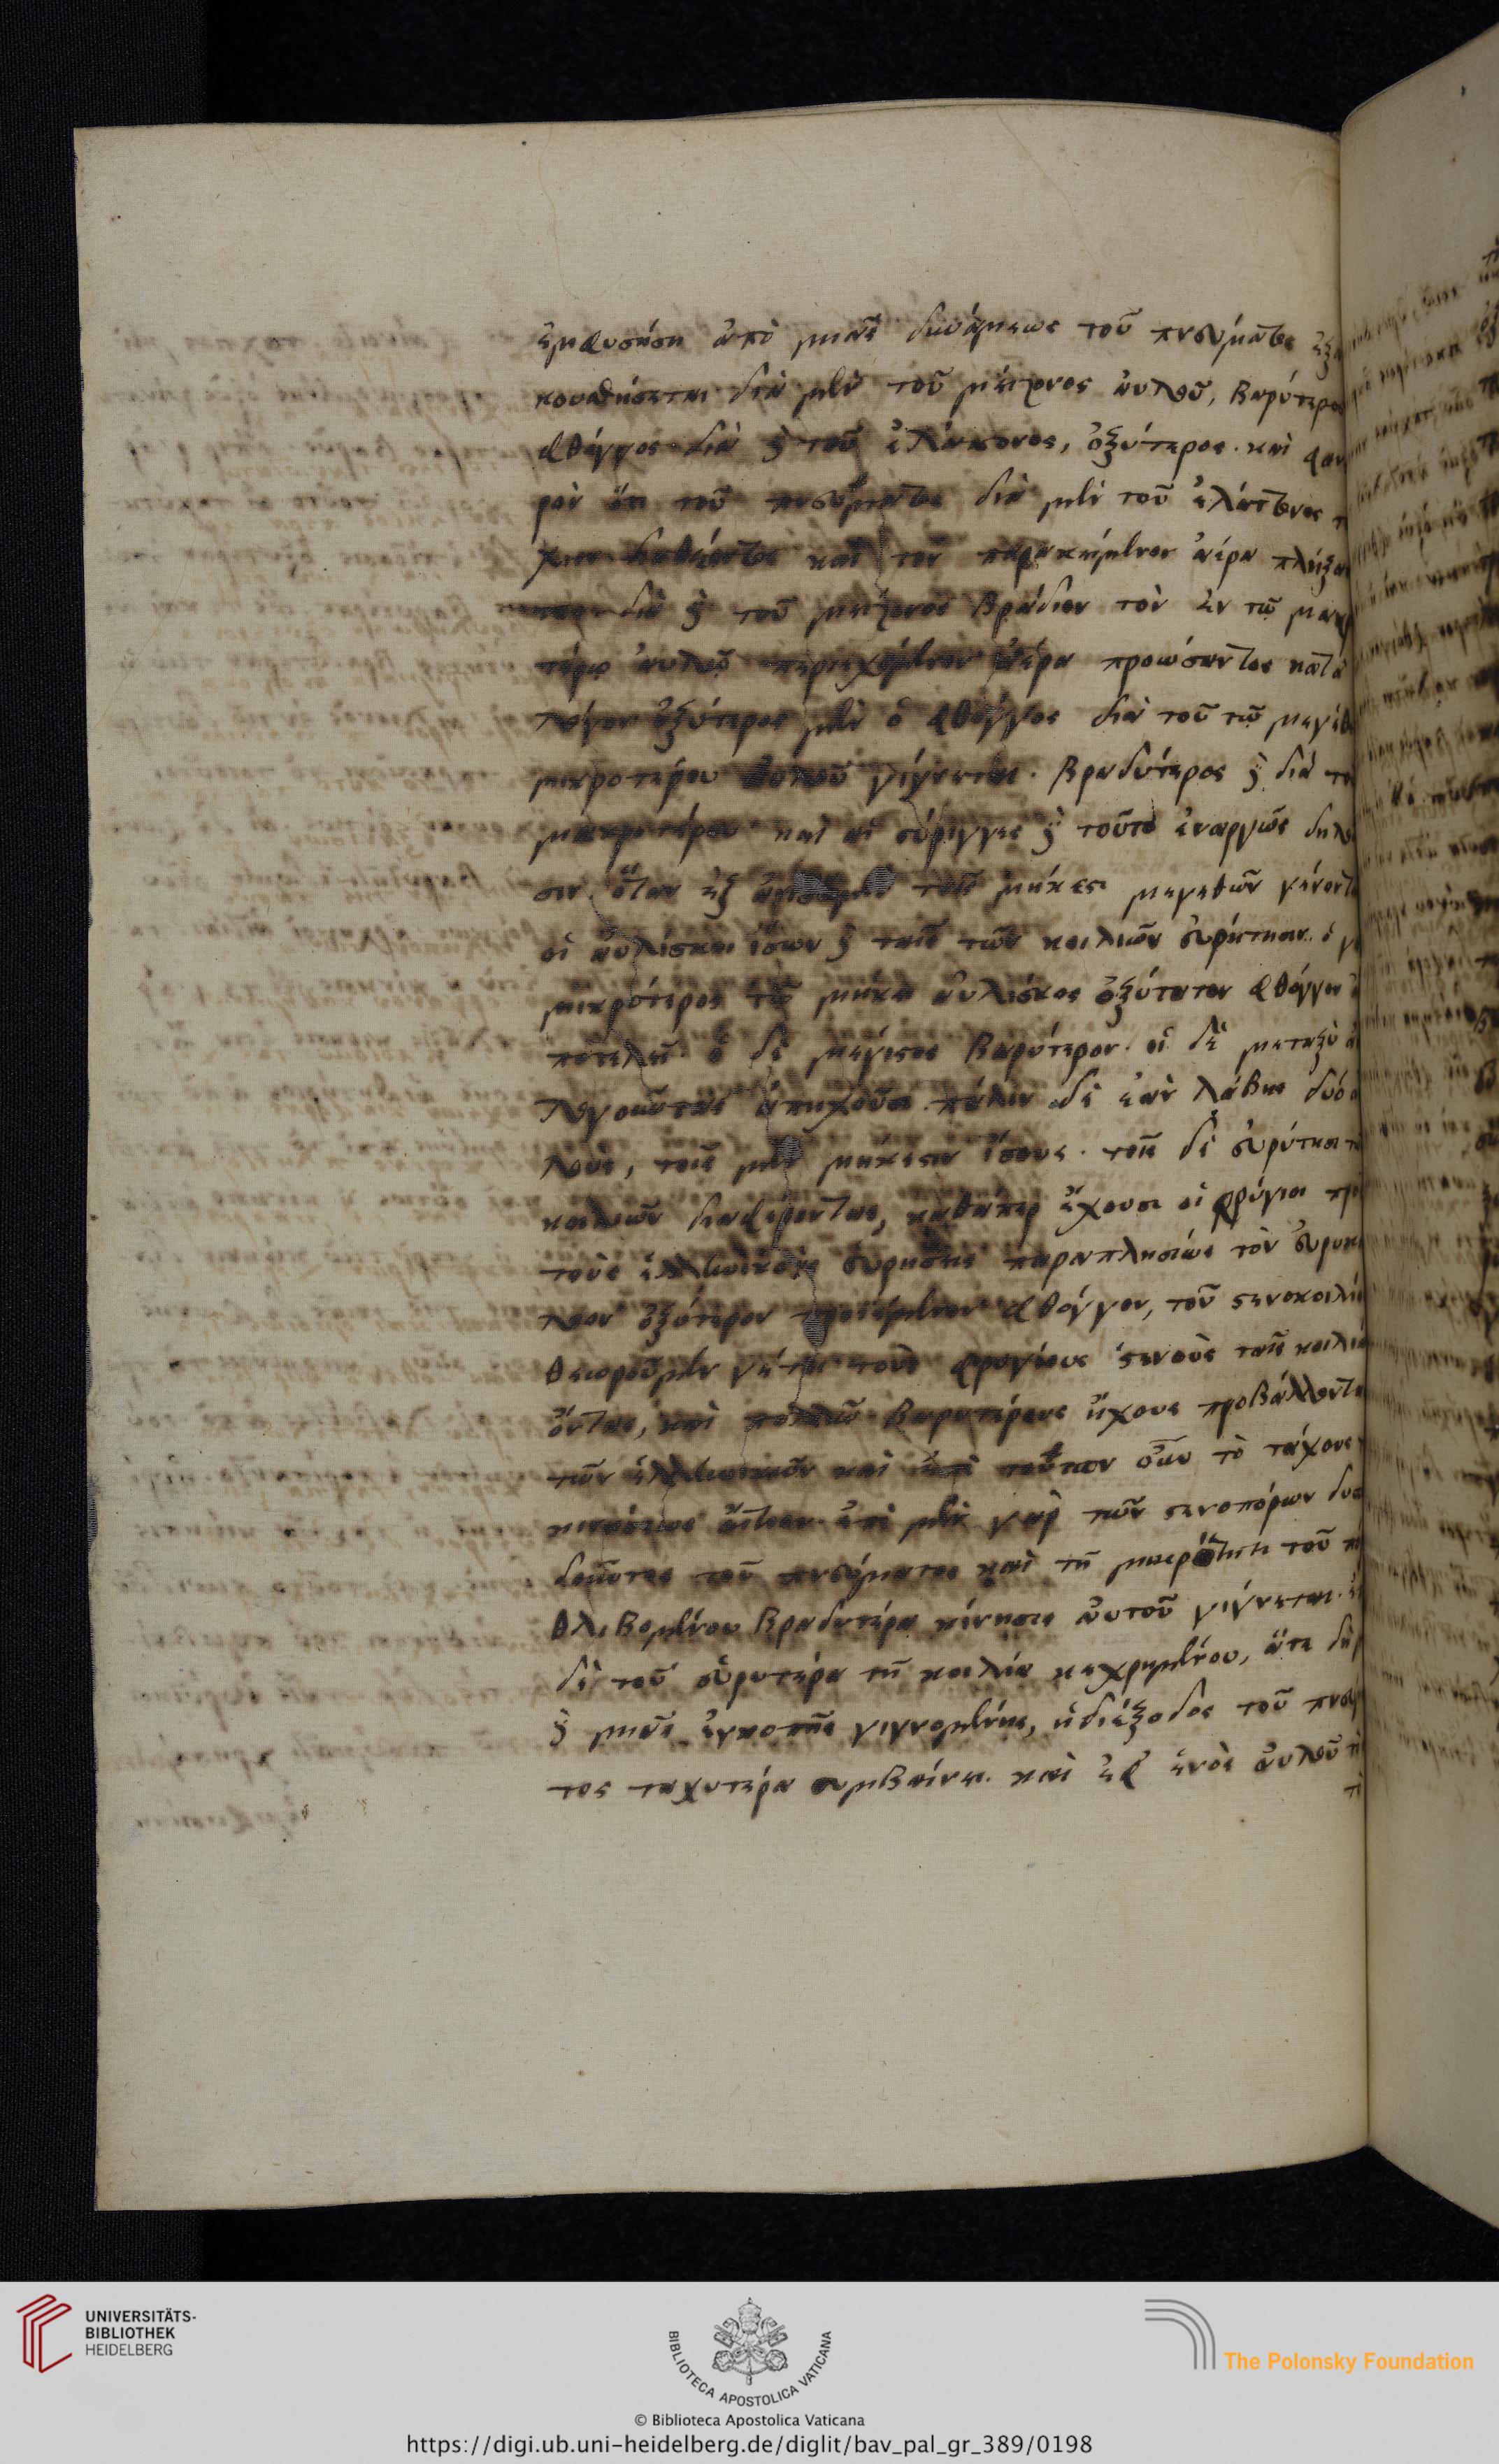 ἐμφυσήσῃ ἀπὸ μιᾶς δυνάμεως τοῦ πνεύματος ἐξα
κουσθήσεται διὰ μὲν τοῦ μείζονος αὐλοῦ, βαρύτερος
φθόγγος διὰ δὲ τοῦ ἐλάσσονος, ὀξύτερος. καὶ φαν
ρὸν ὅτι τοῦ πνεύματος διὰ μὲν τοῦ ἐλάττονος
καὶ τὸν παρακείμενον ἀέρα πλήξαν
διὰ δὲ τοῦ μείζονος βράδιον τὸν ἐν τῷ μακρ
τέρῳ αὐλῷ περιεχόμενον ἀέρα προώσαντος κατὰ
λόγον ὀξύτερος μὲν ὁ φθόγγος διὰ τοῦ τῷ μεγέθ
μικροτέρου γίγνεται. βραδύτερος δὲ διὰ το
μακροτέρου καὶ αἱ σύριγγες δὲ τοῦτο ἐναργῶς δηλο
σιν. ὅταν ἐξ τοῖς μήκεσι μεγεθῶν γένοντ
οἱ αὐλίσκοι ἴσων δὲ ταῖς τῶν κοιλιῶν εὐρύτησιν. ὁ γ
μικρότερος τῷ μήκει αὐλίσκος ὀξύτατον φθόγγον
ποτελεῖ ὁ δὲ μέγιστος βαρύτερον. οἱ δὲ μεταξὺ ἀ
λογοῦντας ἀπηχοῦσι. πάλιν δὲ ἐὰν λάβῃς δύο α
λοὺς, τοῖς μὲν μήκεσιν ἴσους. τοῖς δὲ εὐρύτησι τ
κοιλιῶν διαφέροντας, καθάπερ ἔχουσι οἱ φρύγιοι πρ
τοὺς ἑλληνικοὺς εὑρήσεις παραπλησίως τὸν εὐρυκ
λιον ὀξύτερον προϊέμενον φθόγγον, τοῦ στενοκοιλί
θεωροῦμεν γέ τοι τοὺς φρυγίους στενοὺς ταῖς κοιλία
ὄντας, καὶ πολλῷ βαρυτέρους ἤχους προβάλλοντα
τῶν ἑλληνικῶν καὶ ἐπὶ τούτων οὖν τὸ τάχους
κινήσεως αἴτιον. ἐπὶ μὲν γὰρ τῶν στενοπόρων δυσ
τοῦ πνεύματος καὶ τῇ μικρότητι τοῦ π
θλιβομένου βραδυτέρα κίνησις αὐτοῦ γίγνεται. ἐ
δὲ τοῦ εὐρυτέρᾳ τῇ κοιλίᾳ κεχρημένου, ἅτε δὴ
δὲ μιᾶς ἐγκοπῆς γιγνομένης, ἡ διέξοδος τοῦ πνεύ
τος ταχυτέρα συμβαίνει. καὶ ἐφ᾽ ἑνὸς αὐλοῦ
UNIVERSITÄTS-
BIBLIOTHEK
HEIDELBERG
BIBLIOTECA APOSTOLICA VATICANA
The Polonsky Foundation
© Biblioteca Apostolica Vaticana
https://digi.ub.uni-heidelberg.de/diglit/bav_pal_gr_389/0198